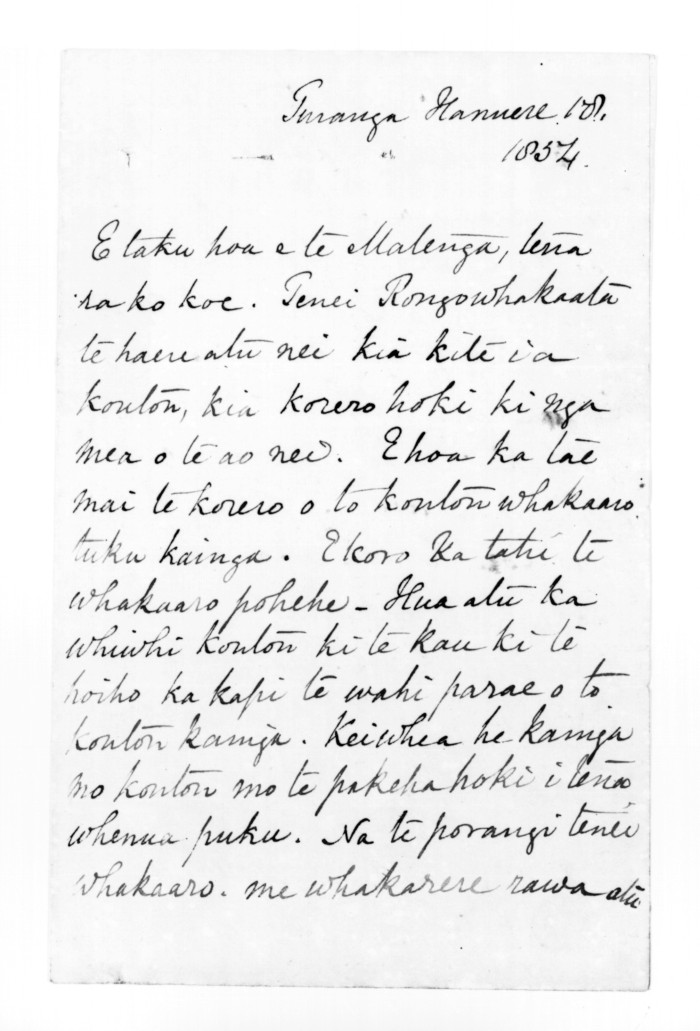 Turanga Hanuere 18.
1854.
E taku hoa e te Matenga, tena
ra ko koe. Tenei Rongowhakaata
te haere atu nei kia kite i a
koutou, kia korero hoki ki nga
mea o te ao nei. Ehoa ka tae
mai te korero o to koutou whakaaro
tuku kainga. Ekoro Ka tahi te
whakaaro pohehe - Hua atu ka
whiwhi koutou ki te kau ki te
hoiho ka kapi te wahi parae o to
koutou kainga. Keiwhea he kainga
mo koutou mo te pakeha hoki i tena
whenua puku. Na te porangi tenei
whakaaro. me whakarere rawa atu